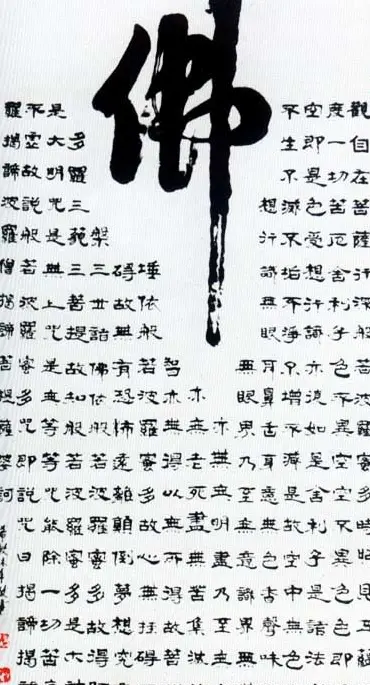 佛
觀自在菩薩行深般若波羅蜜多時照見五蘊
度一切苦厄舍利子色不異空空不異色色即
空即是色受想行識亦復如是舍利子是諸法
不生不滅不垢不淨不增不減是故空中無色
想行識無眼耳鼻舌身意無色香聲味
無眼界乃至無意識界無
亦無無明盡乃至無
亦無老死盡無苦集滅
智亦無得以無所得故菩
埵依般若波羅蜜多故心無罣礙
礙故無有恐怖遠離顛倒夢想究
槃三世諸佛依般若波羅蜜多故得
多羅三藐三菩提故知般若波羅蜜多是大
是大明咒是無上咒是無等等咒能除一切苦
不虛故說般若波羅蜜多咒即說咒曰揭諦揭
羅揭諦波羅僧揭諦菩提薩婆訶